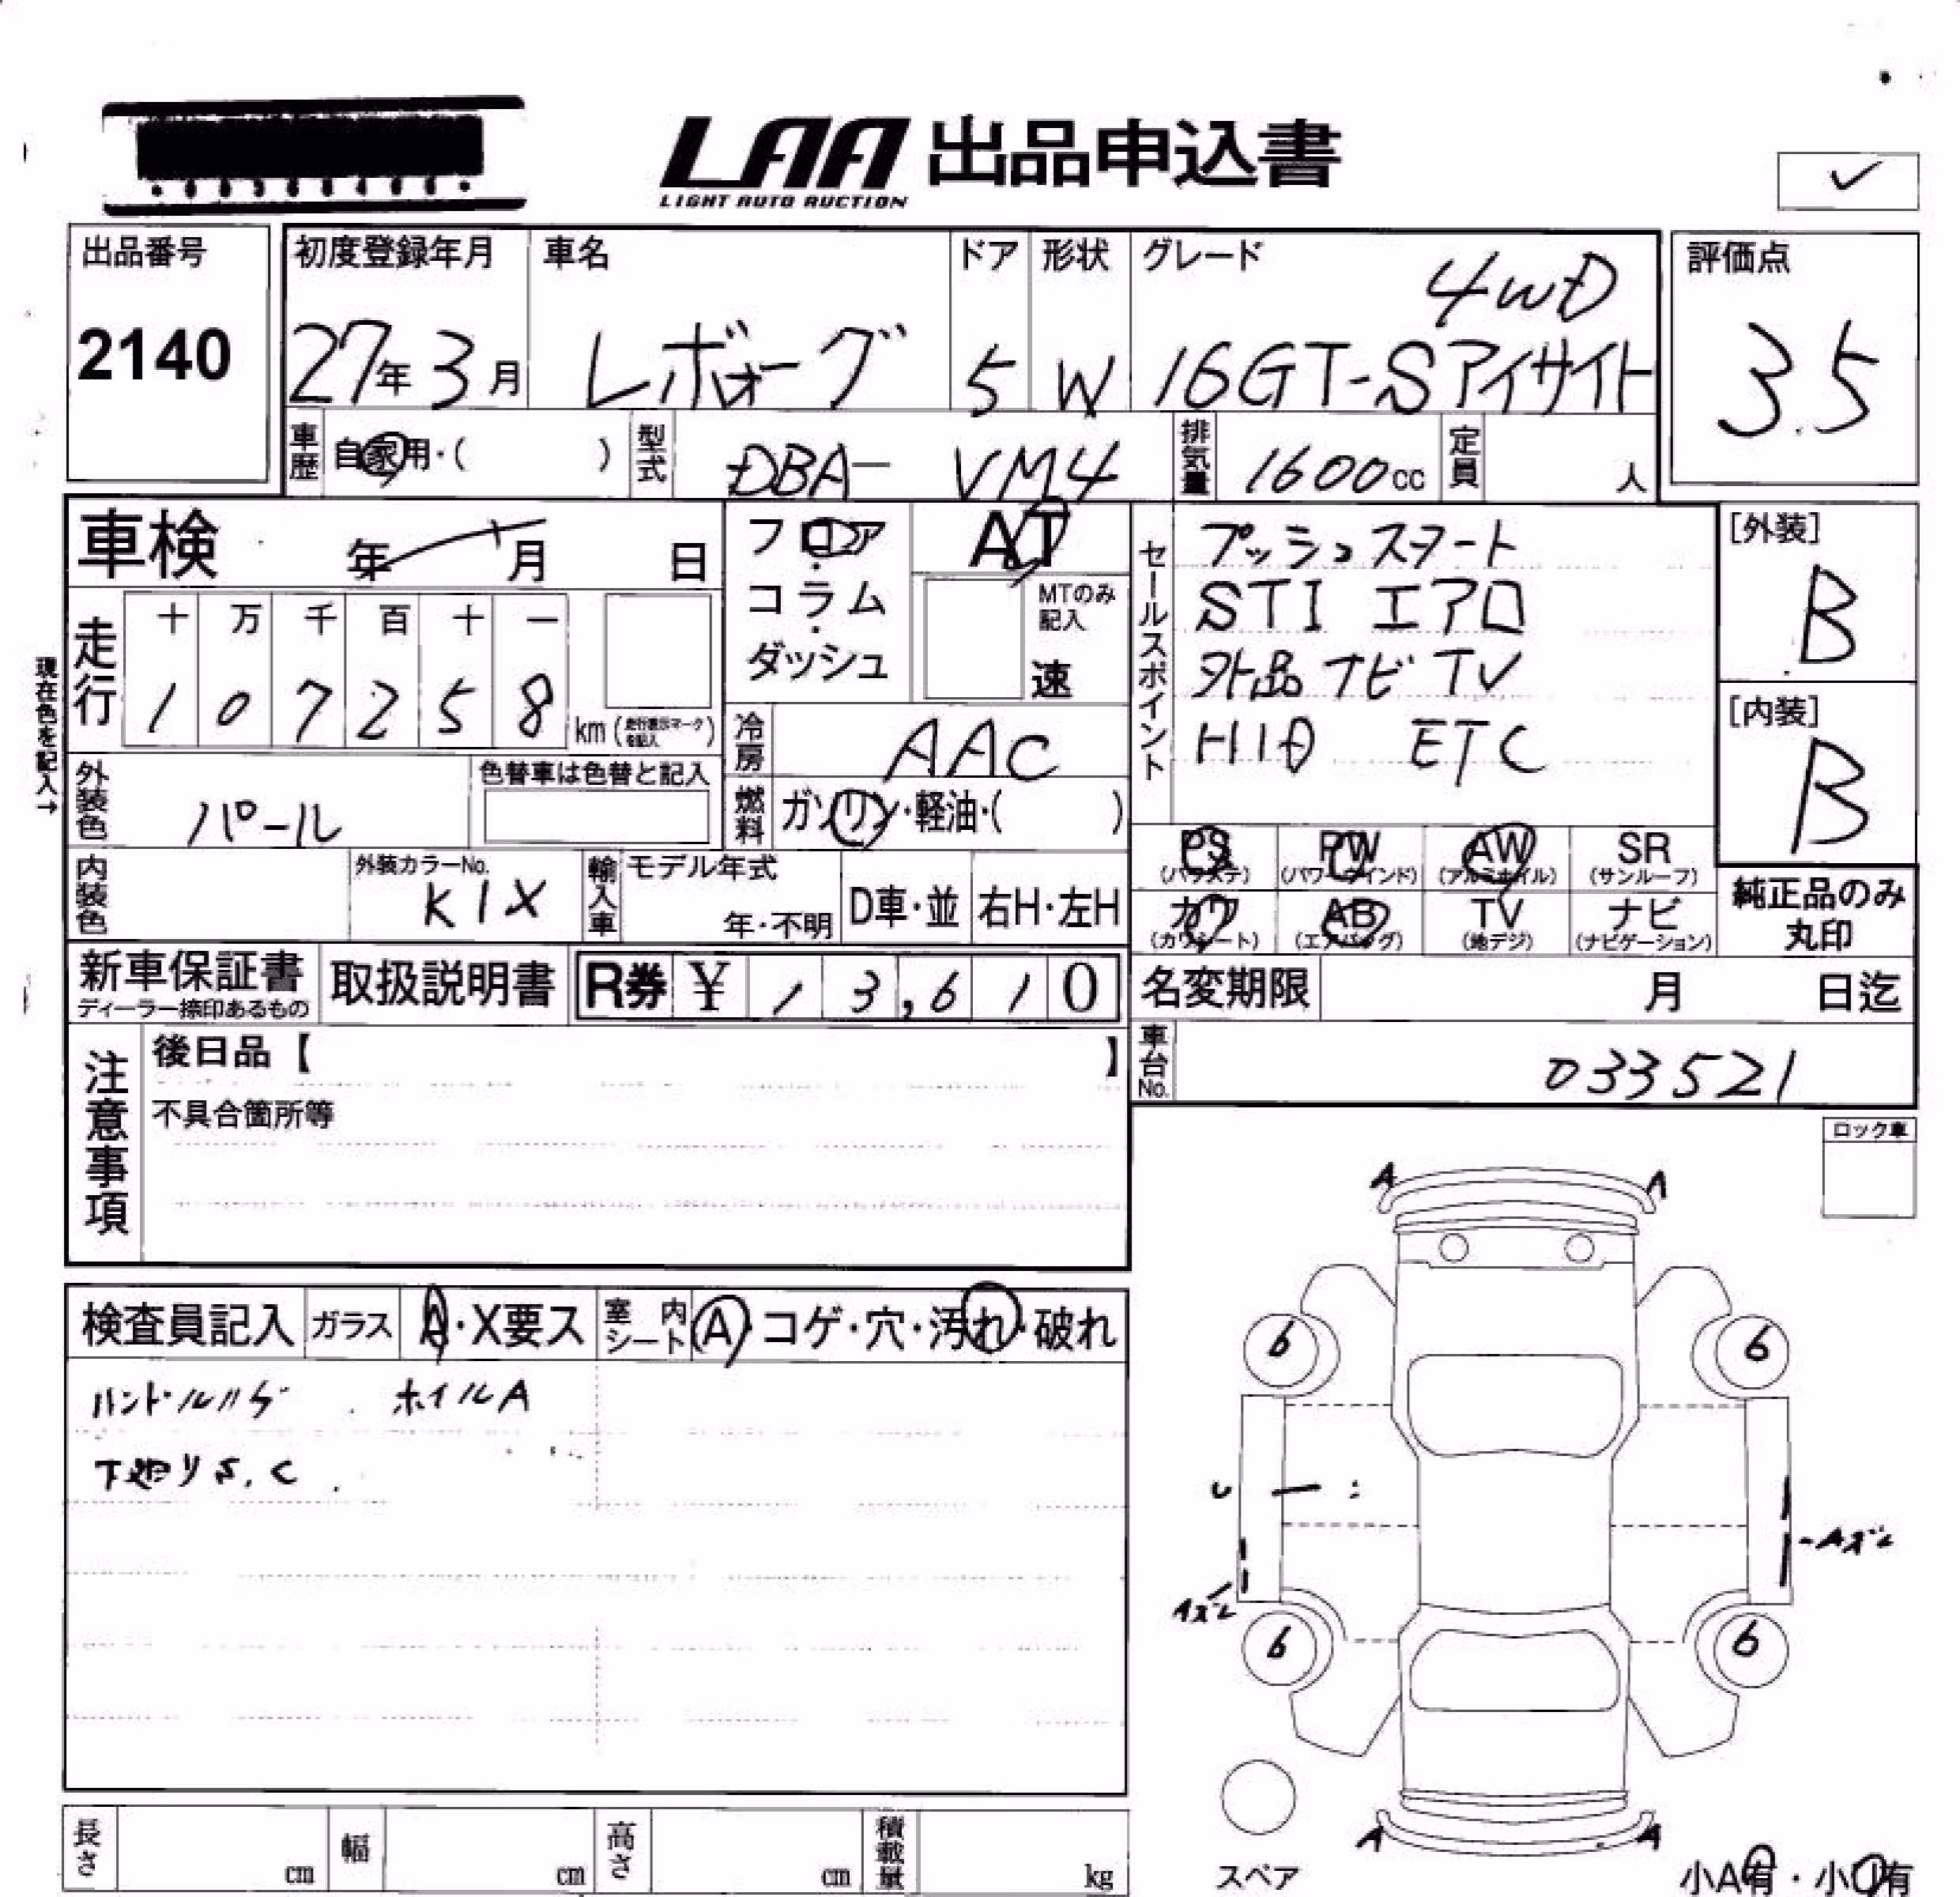 LAA 出品申込書
LIGHT AUTO AUCTION
✓
出品番号
2140
初度登録年月
27年3月
車名
レボォーグ
ドア
5
形状
W
グレード
4WD
16GT-Sアイサイト
評価点
3.5
車歴 自家用・( )
型式 DBA- VM4
排気量 1600cc
定員 人
車検 年 月 日
フロア・コラム・ダッシュ
AT
MTのみ記入
速
セールスポイント
プッシュスタート
STI エアロ
外品ナビTV
HID ETC
[外装]
B
[内装]
B
現在色を記入→
走行
十 万 千 百 十 一
1 0 7 2 5 8
km (走行表示マークを記入)
冷房 AAC
燃料 ガソリン・軽油・( )
外装色 パール
色替車は色替と記入
内装色
外装カラーNo.
K1X
輸入車
モデル年式
年・不明
D車・並
右H・左H
PS (パワステ)
PW (パワーウインド)
AW (アルミホイル)
SR (サンルーフ)
カワ (カワシート)
AB (エアバッグ)
TV (地デジ)
ナビ (ナビゲーション)
純正品のみ丸印
新車保証書
ディーラー捺印あるもの
取扱説明書
R券 ¥ 13,610
名変期限 月 日迄
車台No. 033521
注意事項
後日品【 】
不具合箇所等
ロック車
検査員記入
ガラス A・X要ス
室内シート A・コゲ・穴・汚れ・破れ
ハンドルハゲ . ホイルA
下廻りS.C
A A
6 6
U
Aズレ
Aズレ
6 6
A A
スペア
小A有・小U有
長さ cm
幅 cm
高さ cm
積載量 kg